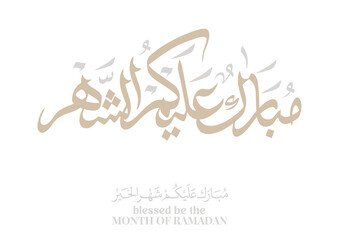 مُبَارَك عَلَيكُم الشَّهر
مُبَارَك عَلَيْكُمْ شَهْر الخَيْر
blessed be the
MONTH OF RAMADAN